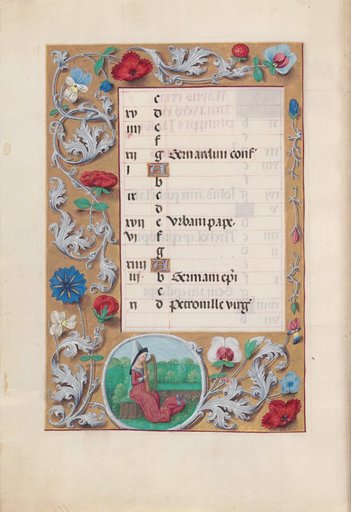 c
xv d
iiii e
f
xii g Bernardini conf'
i A
b
ix c
d
xvii e Urbani pape.
vi f
g
xiiii A
iii. b Germani epi
c
xi d Petronille virg'